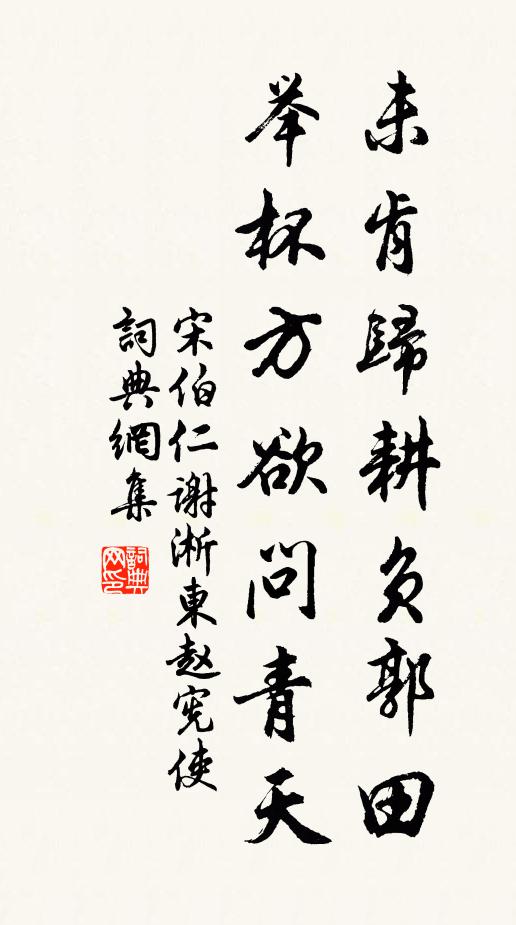 未肯歸耕负郭田
举杯方欲问青天
宋伯仁谢淅東赵宪使
詞典網集
詞典网印